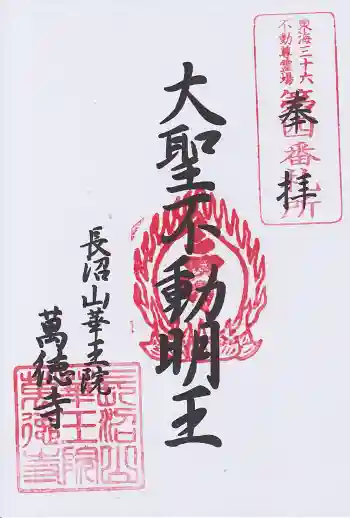 東海三十六
不動尊霊場
第四番札所
奉拝
大聖不動明王
長沼山華王院
萬徳寺
長沼山
華王院
萬徳寺